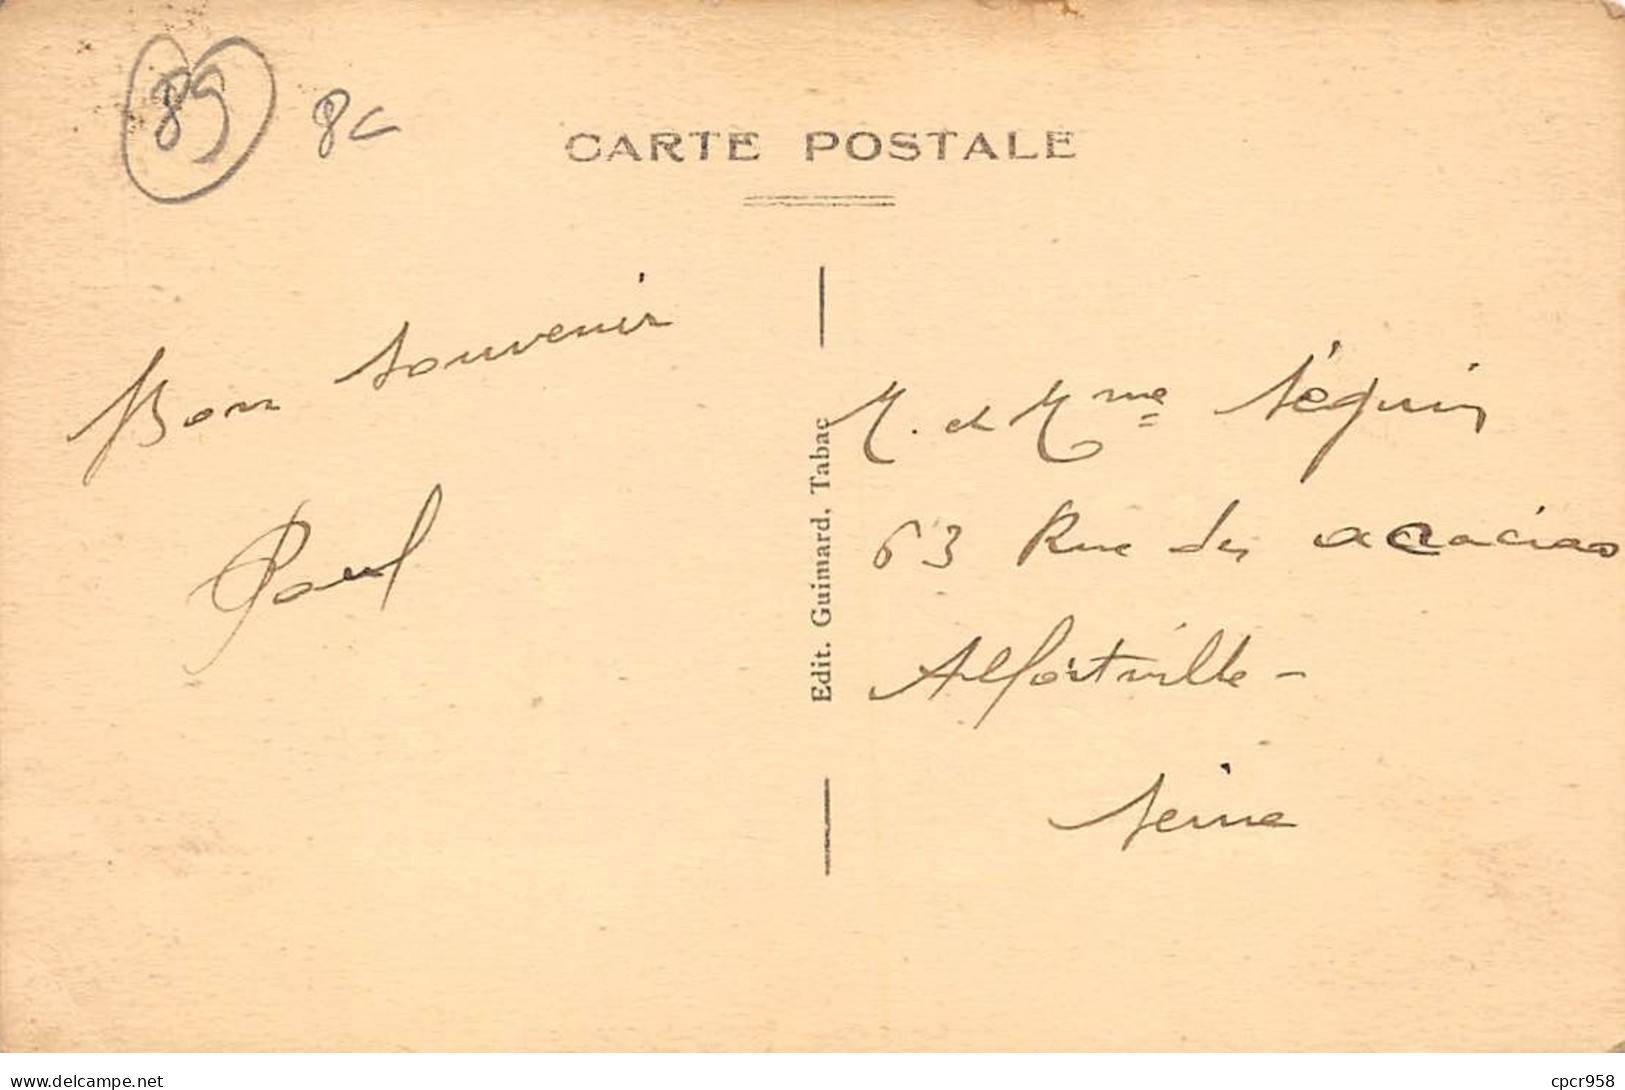 89 8c
CARTE POSTALE
Bon souvenir
Paul
Edit. Guimard, Tabac
M. et Mme Séguin
63 Rue des acacias
Alfortville -
Seine
delcampe.net
cpcr958